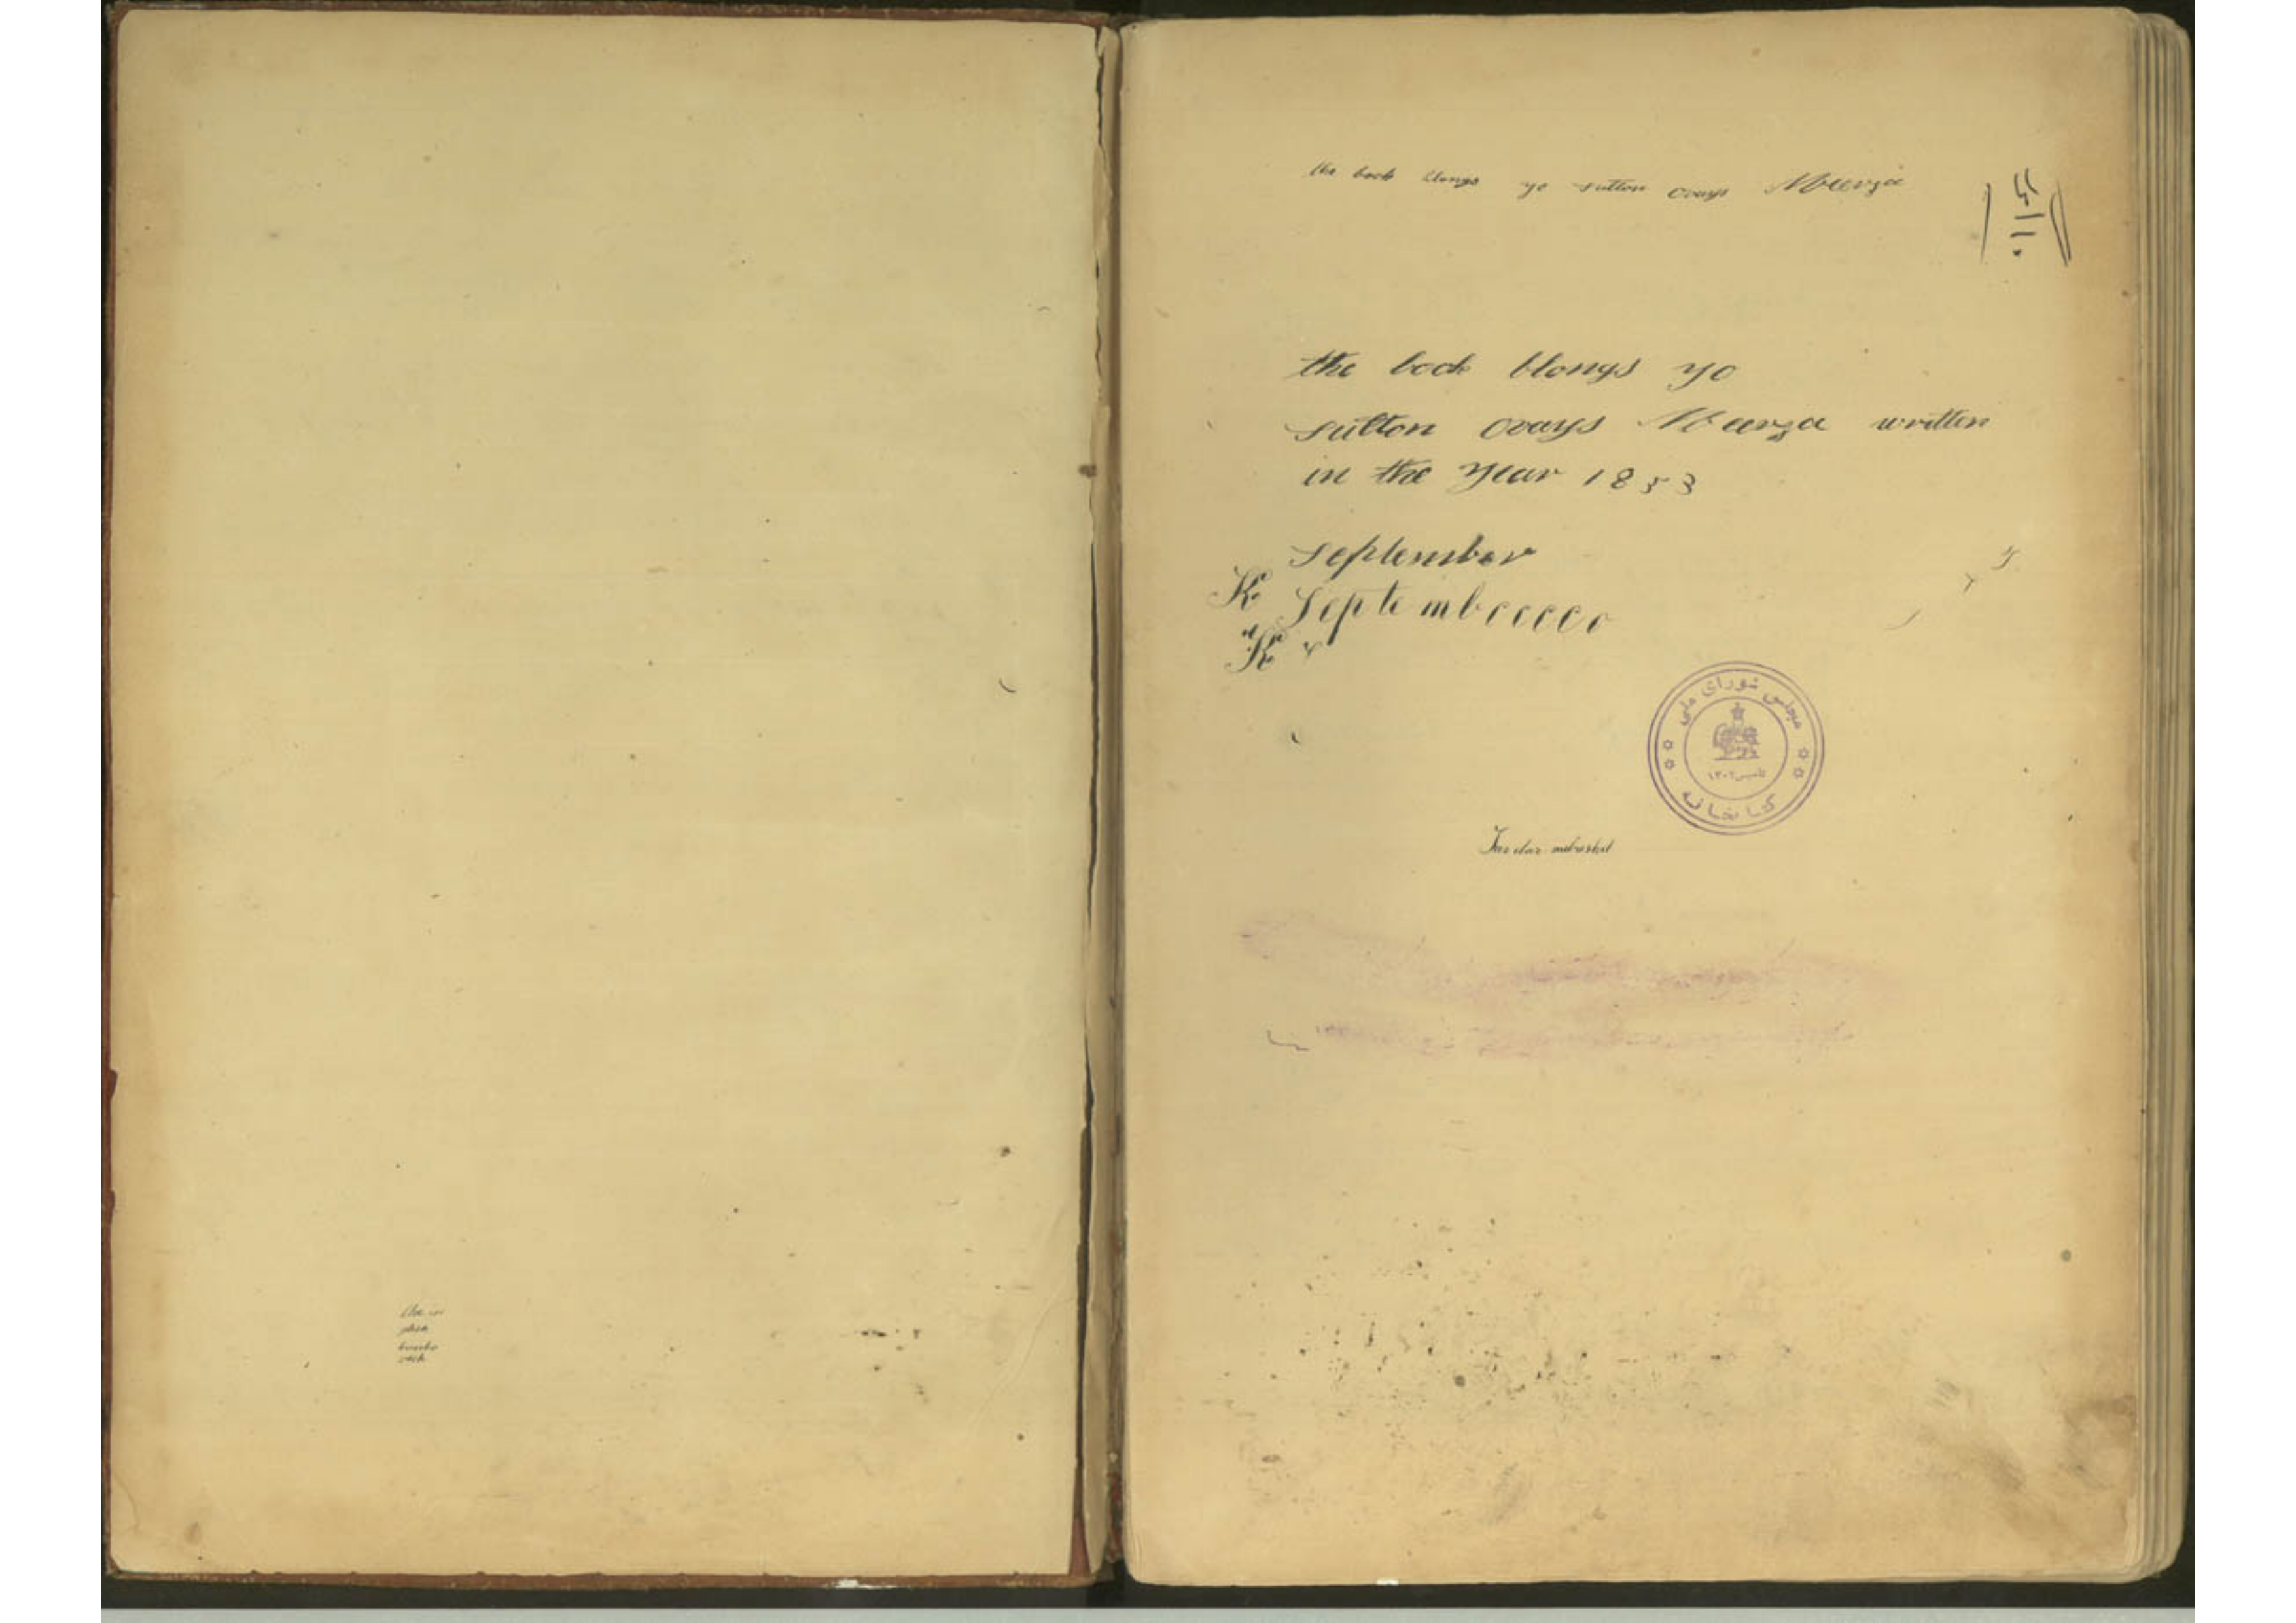 the book blongs yo sulton ovays Meerza
the book blongs yo
sulton ovays Meerza written
in the year 1853
September
K Septembccccc
K
مجلس شورای ملی
تأسیس ۱۳۰۲
کتابخانه